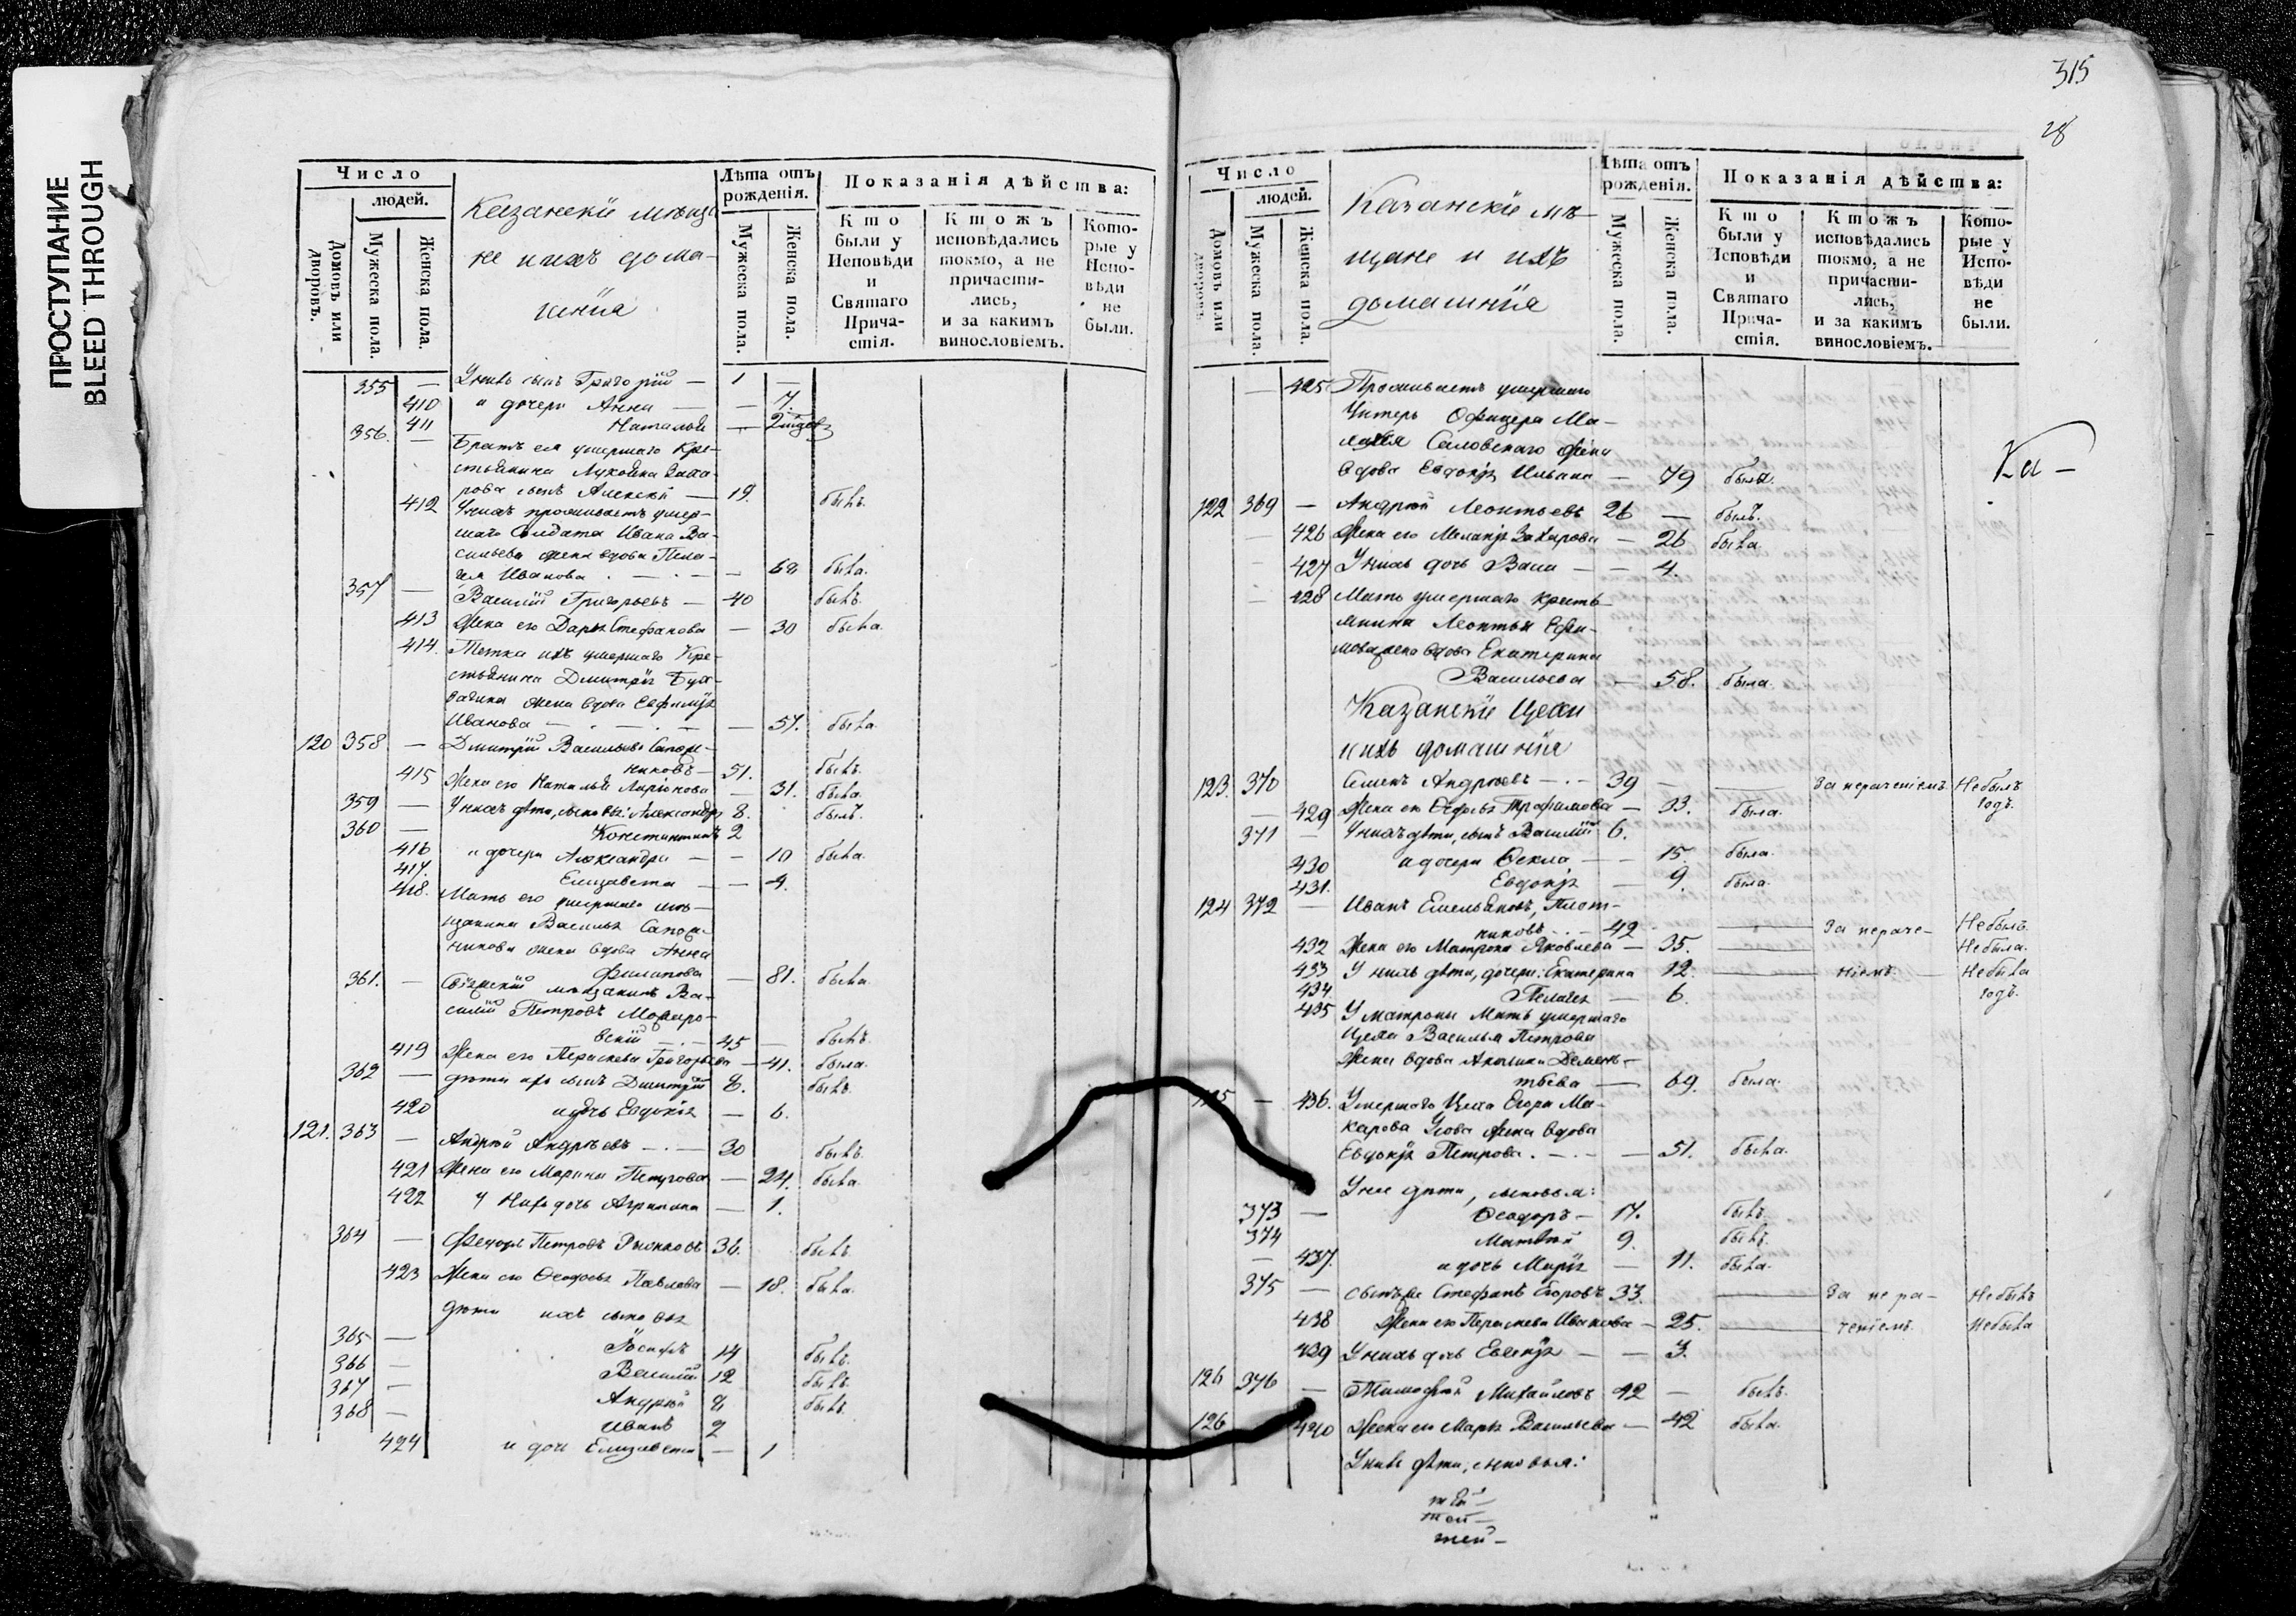 ПРОСТУПАНИЕ
BLEED THROUGH
Число
людей.
Домовъ или дворовъ.
Мужеска пола.
Женска пола.
Казанскїе мѣща
не и ихъ дома-
шнїя
Лѣта отъ рожденія.
Мужеска пола.
Женска пола.
Показанія дѣйства:
Кто были у Исповѣди и Святаго Прича-стія.
Ктожъ исповѣдались токмо, а не причасти-лись, и за какимъ винословіемъ.
Кото-рые у Испо-вѣди не были.
355 — У нихъ сынъ Григорїй — 1 —
410 и дочери Анна — — 7.
411 Наталья —
356. — Братъ ея умершаго Кре-
стьянина Заха-
рова сынъ Алексѣй — 19. былъ.
412 У нихъ проживаетъ умер-
шаго Солдата Ивана Ва-
сильева жена вдова Пела-
гея Иванова — — была.
357 — Василїй Григорьевъ — 40 былъ.
413 Жена его Дарья Стефанова — 30 была.
414. Тетка ихъ умершаго Кре-
стьянина Дмитрїя
жена вдова Евфимїя
Иванова — — 57. была.
120 358 — Дмитрїй Васильевъ Сапож-
никовъ — 51. былъ.
415 Жена его Наталья — 31. была.
359 — У нихъ дѣти, сыновья: Александръ 8. былъ.
360 — Константинъ 2
416 и дочери Александра — — 10 была.
417. Елизавета — — 4.
418. Мать его умершаго мѣ-
щанина Василья Сапож-
никова жена вдова Анна
Филипова — 81. была.
361. — Свїяжскїй мѣщанинъ Ва-
силїй Петровъ
45 — былъ.
419 Жена его Параскева Григорьева — 41. была.
362 — дѣти ихъ сынъ Дмитрїй 8. былъ.
420 и дочь Евдокїя — 6.
121. 363 — Андрей Андреевъ — 30 былъ.
421 Жена его Марина Петрова — 24. была.
422 У нихъ дочь Агрипина — 1.
364 — Петровъ 36. былъ.
423 Жена его Ѳеодосья Павлова — 18. была.
дѣти ихъ сыновья
365 — Їосифъ 14 былъ.
366 — Василїй 12 былъ.
367 — Андрей 8 былъ.
368 — Иванъ 2
424 и дочь Елизавета — 1
315
28
Число
людей.
Домовъ или дворовъ.
Мужеска пола.
Женска пола.
Казанскїе мѣ-
щане и ихъ
домашнїя
Лѣта отъ рожденія.
Мужеска пола.
Женска пола.
Показанія дѣйства:
Кто были у Исповѣди и Святаго Прича-стія.
Ктожъ исповѣдались токмо, а не причасти-лись, и за какимъ винословіемъ.
Кото-рые у Испо-вѣди не были.
— 425 Проживаетъ умершаго
Унтеръ Офицера Ма-
жена
вдова Евдокїя Ильина — 79 была.
Ка —
122 369 — Андрей Леонтьевъ 26 — былъ.
— 426 Жена его Меланїя Захарова — 26 была
— 427 У нихъ дочь Васса — — 4.
— 428 Мать умершаго кресть-
янина Леонтья Ефи-
мова жена вдова Екатерина
Васильева — 58. была.
Казанскїе Цехи
и ихъ домашнїя
123. 370 Семенъ Андреевъ — 39 — За нераченїемъ Небылъ
годъ.
— 429 Жена его Ѳедосья Трофимова — 33. была.
371 — У нихъ дѣти, сынъ Василїй 6.
430 и дочери Ѳекла — — 15. была.
431. Евдокїя — 9. была.
124 372 — Иванъ Емельяновъ, Плот-
никовъ — 42 За нераче- Небылъ.
432 Жена его Матрона Яковлева — 35. Небыла.
433 У нихъ дѣти, дочери: Екатерина 12. нїемъ. Небыла
434 Пелагея — 6. годъ.
435 У Матроны Мать умершаго
Цеха Василья Петрова
Жена вдова Акилина Демен-
тьева — 69. была.
125 — 436. Умершаго Цеха Егора Ма-
карова жена вдова
Евдокїя Петрова. — — 51. была.
У нее дѣти, сыновья:
373 — Ѳеодоръ — 17. былъ.
374 Матвей 9. былъ.
— 437. и дочь Марїя — 11. была.
375 — Стефанъ Егоровъ 33. За нера- Небылъ
438 Жена его Параскева Иванова — 25. ченїемъ. Небыла
439 У нихъ дочь Евгенїя — — 3.
126 376 — Тимофей Михайловъ 42 — былъ.
126 440 Жена его Марья Васильева — 42 была.
У нихъ дѣти, сыновья:
тей —
тей —
тей —